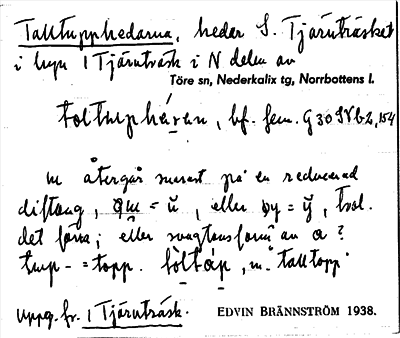 Talltupphedarna, hedar S. Tjäruträsket
i byn 1 Tjäruträsk i N delen av
Töre sn, Nederkalix tg, Norrbottens l.
bf. fem. G 30
återgår snarast på en reducerad
diftong, = ŭ, eller oy = y̆, trol.
det förra; eller svagtonsform av a?
tup- = topp. "talltopp"
Uppg. fr. 1 Tjäruträsk. EDVIN BRÄNNSTRÖM 1938.